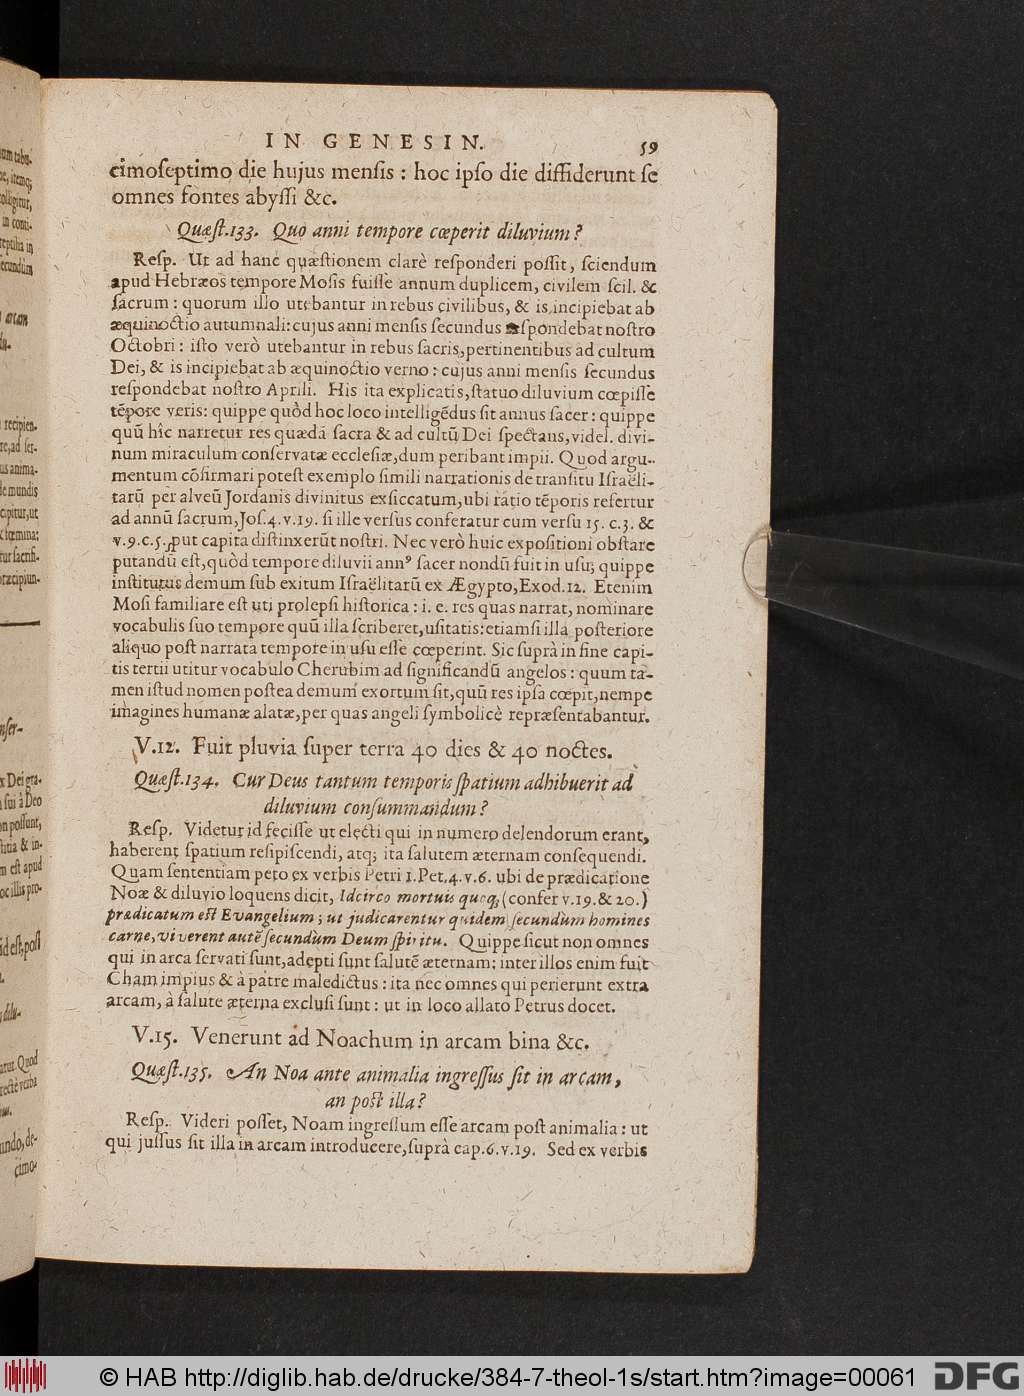 IN GENESIN. 59
cimoſeptimo die hujus menſis : hoc ipſo die diffiderunt ſe
omnes fontes abyſſi &c.
Quæſt.133. Quo anni tempore cœperit diluvium?
Reſp. Ut ad hanc quæſtionem clarè reſponderi poſſit, ſciendum
apud Hebræos tempore Moſis fuiſſe annum duplicem, civilem ſcil. &
ſacrum : quorum illo utebantur in rebus civilibus, & is incipiebat ab
æquinoctio autumnali: cujus anni menſis ſecundus ſpondebat noſtro
Octobri : iſto verò utebantur in rebus ſacris, pertinentibus ad cultum
Dei, & is incipiebat ab æquinoctio verno : cujus anni menſis ſecundus
reſpondebat noſtro Aprili. His ita explicatis, ſtatuo diluvium cœpiſſe
tēpore veris: quippe quòd hoc loco intelligēdus ſit annus ſacer : quippe
quū hîc narretur res quædā ſacra & ad cultū Dei ſpectans, videl. divi-
num miraculum conſervatæ eccleſiæ, dum peribant impii. Quod argu-
mentum cōfirmari poteſt exemplo ſimili narrationis de tranſitu Iſraëli-
tarū per alveū Jordanis divinitus exſiccatum, ubi ratio tēporis refertur
ad annū ſacrum, Joſ.4.v.19. ſi ille verſus conferatur cum verſu 15. c.3. &
v.9.c.5. put capita diſtinxerūt noſtri. Nec verò huic expoſitioni obſtare
putandū eſt, quòd tempore diluvii annꝰ ſacer nondū fuit in uſu; quippe
inſtitutus demum ſub exitum Iſraëlitarū ex Ægypto, Exod.12. Etenim
Moſi familiare eſt uti prolepſi hiſtorica : i. e. res quas narrat, nominare
vocabulis ſuo tempore quū illa ſcriberet, uſitatis: etiamſi illa poſteriore
aliquo poſt narrata tempore in uſu eſſe cœperint. Sic ſuprà in fine capi-
tis tertii utitur vocabulo Cherubim ad ſignificandū angelos : quum ta-
men iſtud nomen poſtea demum exortum ſit, quū res ipſa cœpit, nempe
imagines humanæ alatæ, per quas angeli ſymbolicè repræſentabantur.
V.12. Fuit pluvia ſuper terra 40 dies & 40 noctes.
Quæſt.134. Cur Deus tantum temporis ſpatium adhibuerit ad
diluvium conſummandum?
Reſp. Videtur id feciſſe ut electi qui in numero delendorum erant,
haberent ſpatium reſipiſcendi, atq; ita ſalutem æternam conſequendi.
Quam ſententiam peto ex verbis Petri 1.Pet.4.v.6. ubi de prædicatione
Noæ & diluvio loquens dicit, Idcirco mortuis quoq; (confer v.19.& 20.)
prædicatum eſt Evangelium; ut judicarentur quidem ſecundùm homines
carne, viverent autē ſecundùm Deum ſpiritu. Quippe ſicut non omnes
qui in arca ſervati ſunt, adepti ſunt ſalutē æternam; inter illos enim fuit
Cham impius & à patre maledictus : ita nec omnes qui perierunt extra
arcam, à ſalute æterna excluſi ſunt : ut in loco allato Petrus docet.
V.15. Venerunt ad Noachum in arcam bina &c.
Quæſt.135. An Noa ante animalia ingreſſus ſit in arcam,
an poſt illa?
Reſp. Videri poſſet, Noam ingreſſum eſſe arcam poſt animalia : ut
qui juſſus ſit illa in arcam introducere, ſuprà cap.6.v.19. Sed ex verbis
© HAB http://diglib.hab.de/drucke/384-7-theol-1s/start.htm?image=00061
DFG